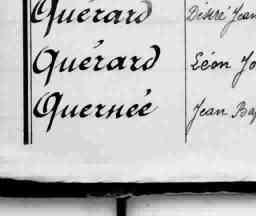 Quérard Désiré Jean
Quérard Léon Jo
Quernée Jean Bap